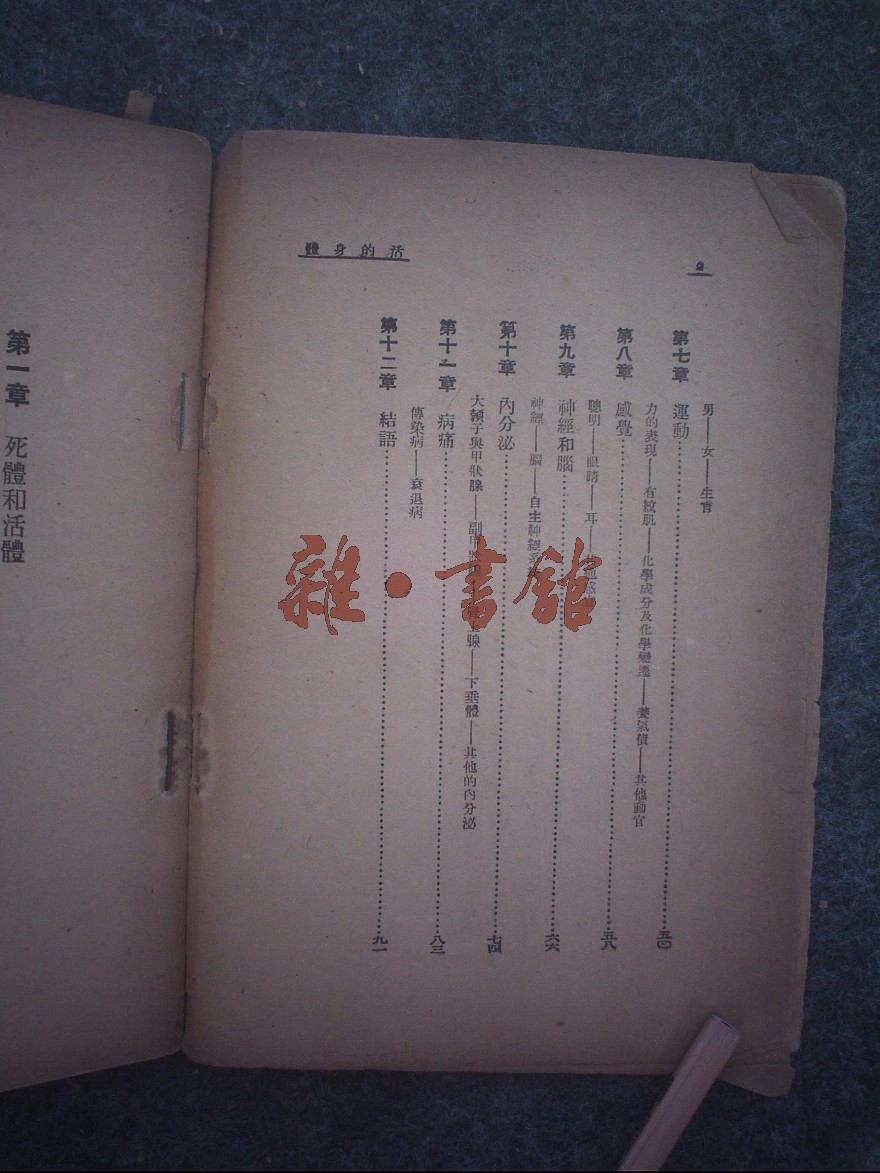 2
體身的活
男——女——生育
第七章 運動……五〇
力的表現——有紋肌——化學成分及化學變遷——養氣債——其他動官
第八章 感覺……五八
聰明——眼睛——耳——
第九章 神經和腦……六六
神經——腦——自主神經系
第十章 內分泌……七四
大頸子與甲狀腺——副甲——下垂體——其他的內分泌
第十一章 病痛……八三
傳染病——衰退病
第十二章 結語……九一
第一章 死體和活體
雜·書館